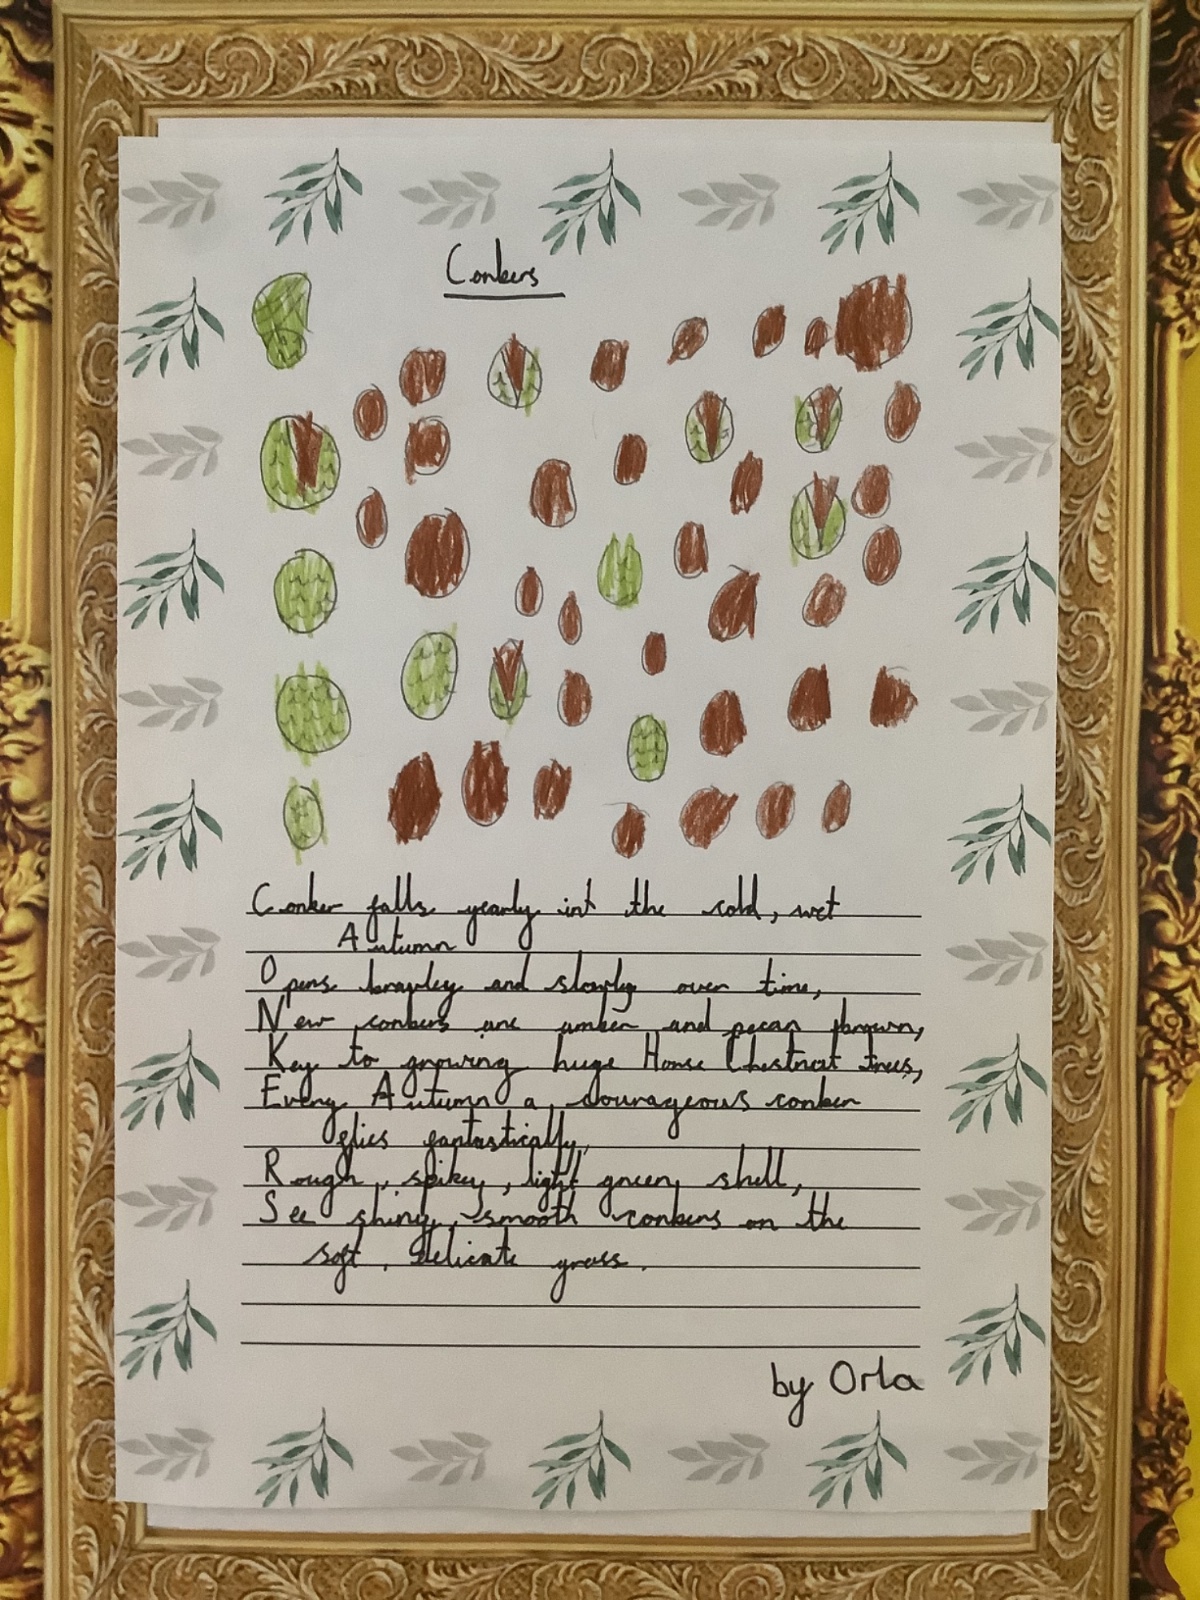 Conkers
Conker falls yearly int the cold, wet
Autumn
Opens bravley and slowly over time,
New conkers are amber and pecan brown,
Key to growing huge Horse Chestnut trees,
Every Autumn a courageous conker
flies fantastically,
Rough, spikey, light green shell,
See shiny, smooth conkers on the
soft, delicate grass.
by Orla